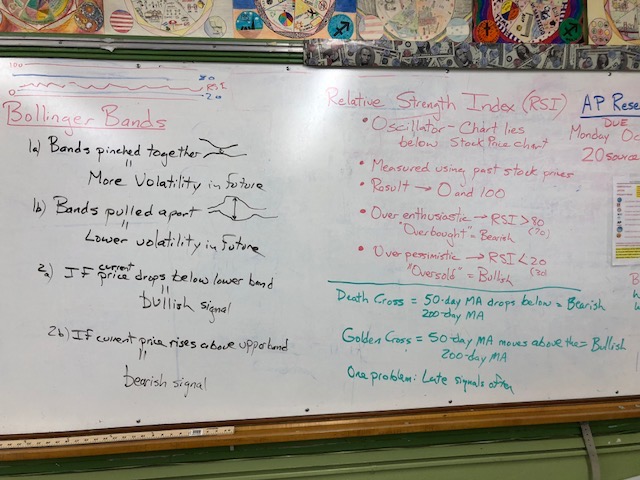 100
80
RSI
0
20
Bollinger Bands
1a) Bands pinched together
"
More Volatility in future
1b) Bands pulled apart
"
Lower volatility in Future
2a) If current price drops below lower band
"
bullish signal
2b) If current price rises above upper band
"
bearish signal
Relative Strength Index (RSI)
• Oscillator - Chart lies
below Stock Price chart
• Measured using past stock prices
• Result → 0 and 100
• Over enthusiastic → RSI > 80
"Overbought" = Bearish (70)
• Over pessimistic → RSI < 20
"Oversold" = Bullish (30)
Death Cross = 50-day MA drops below = Bearish
200-day MA
Golden Cross = 50-day MA moves above the = Bullish
200-day MA
One problem: Late signals often
AP Rese
DUE
Monday Oc
20 source